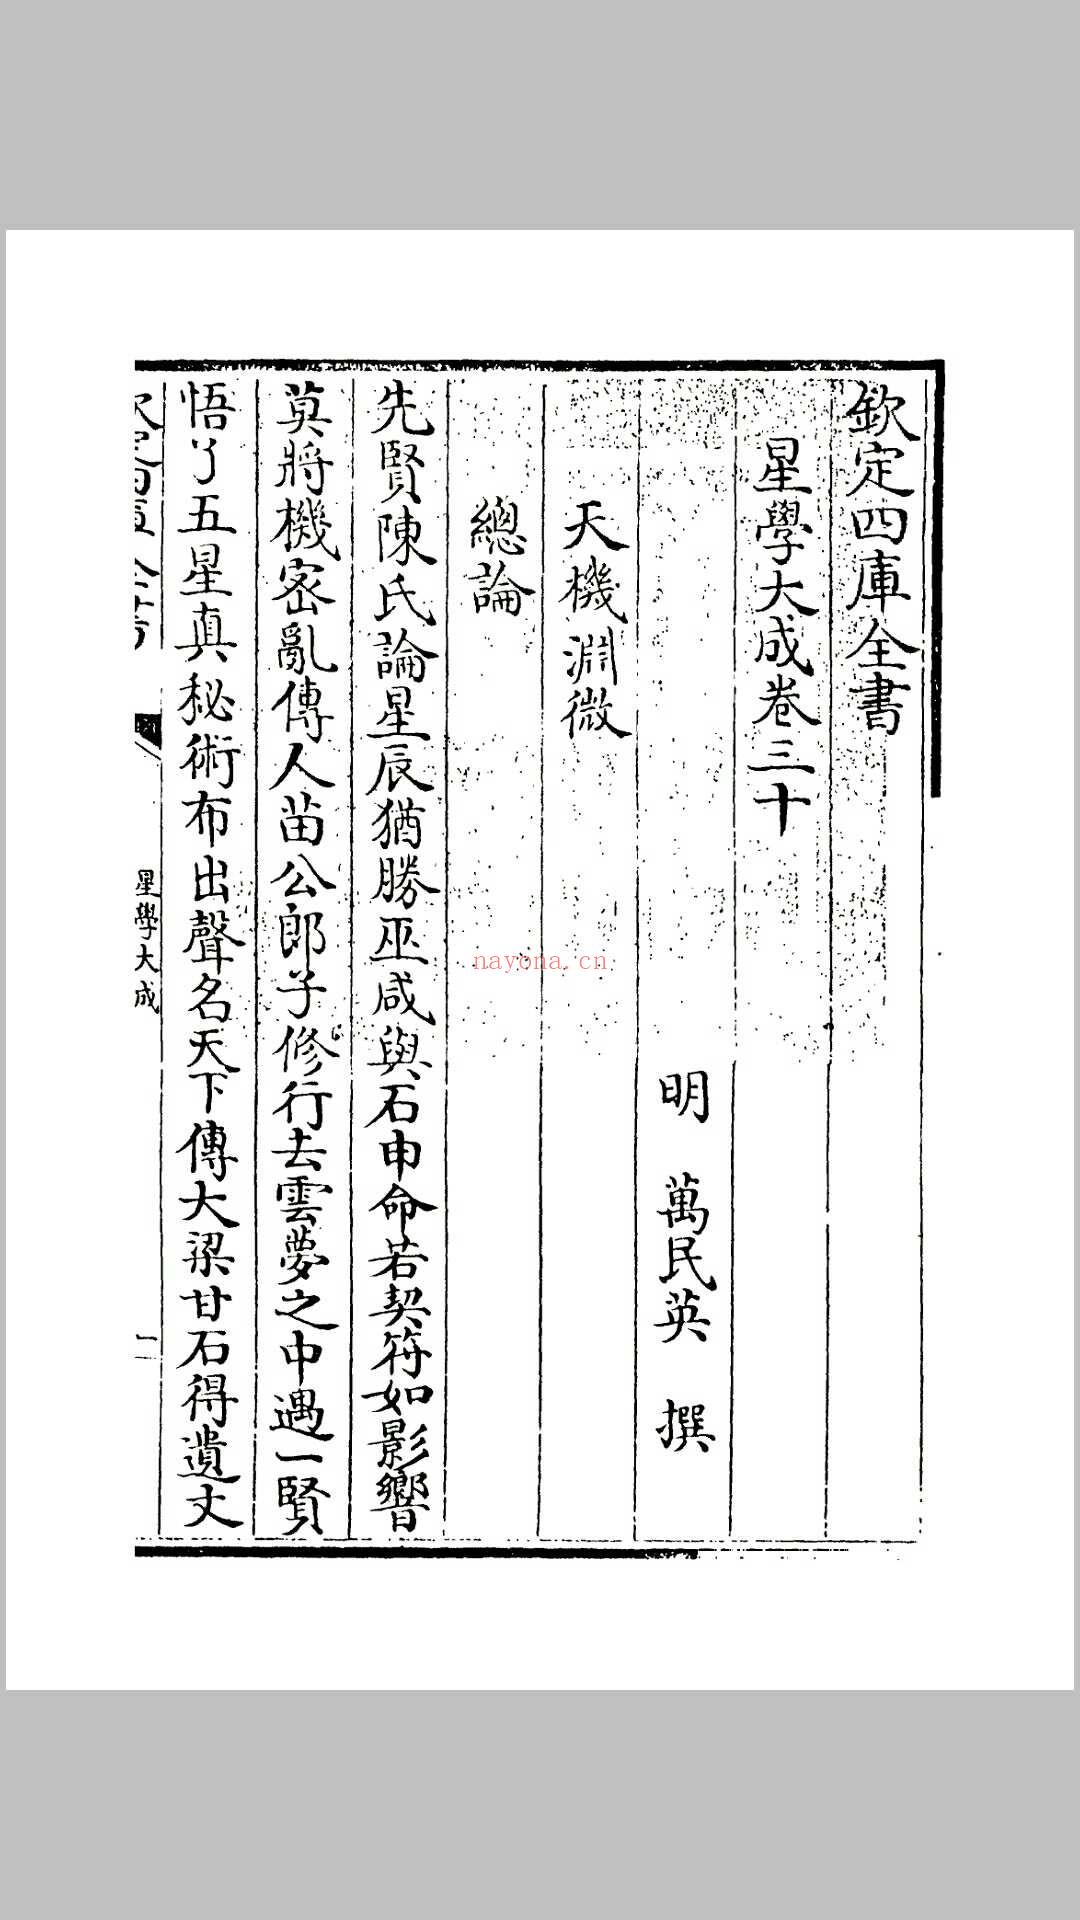 欽定四庫全書
星學大成卷三十
明 萬民英 撰
天機淵微
總論
先賢陳氏論星辰猶勝巫咸與石申命若契符如影響
莫將機宻亂傳人苗公郎子修行去雲夢之中遇一賢
悟丫五星真秘術布出聲名天下傳大梁甘石得遺文
欽定四庫全書
星學大成
一
nayona.cn